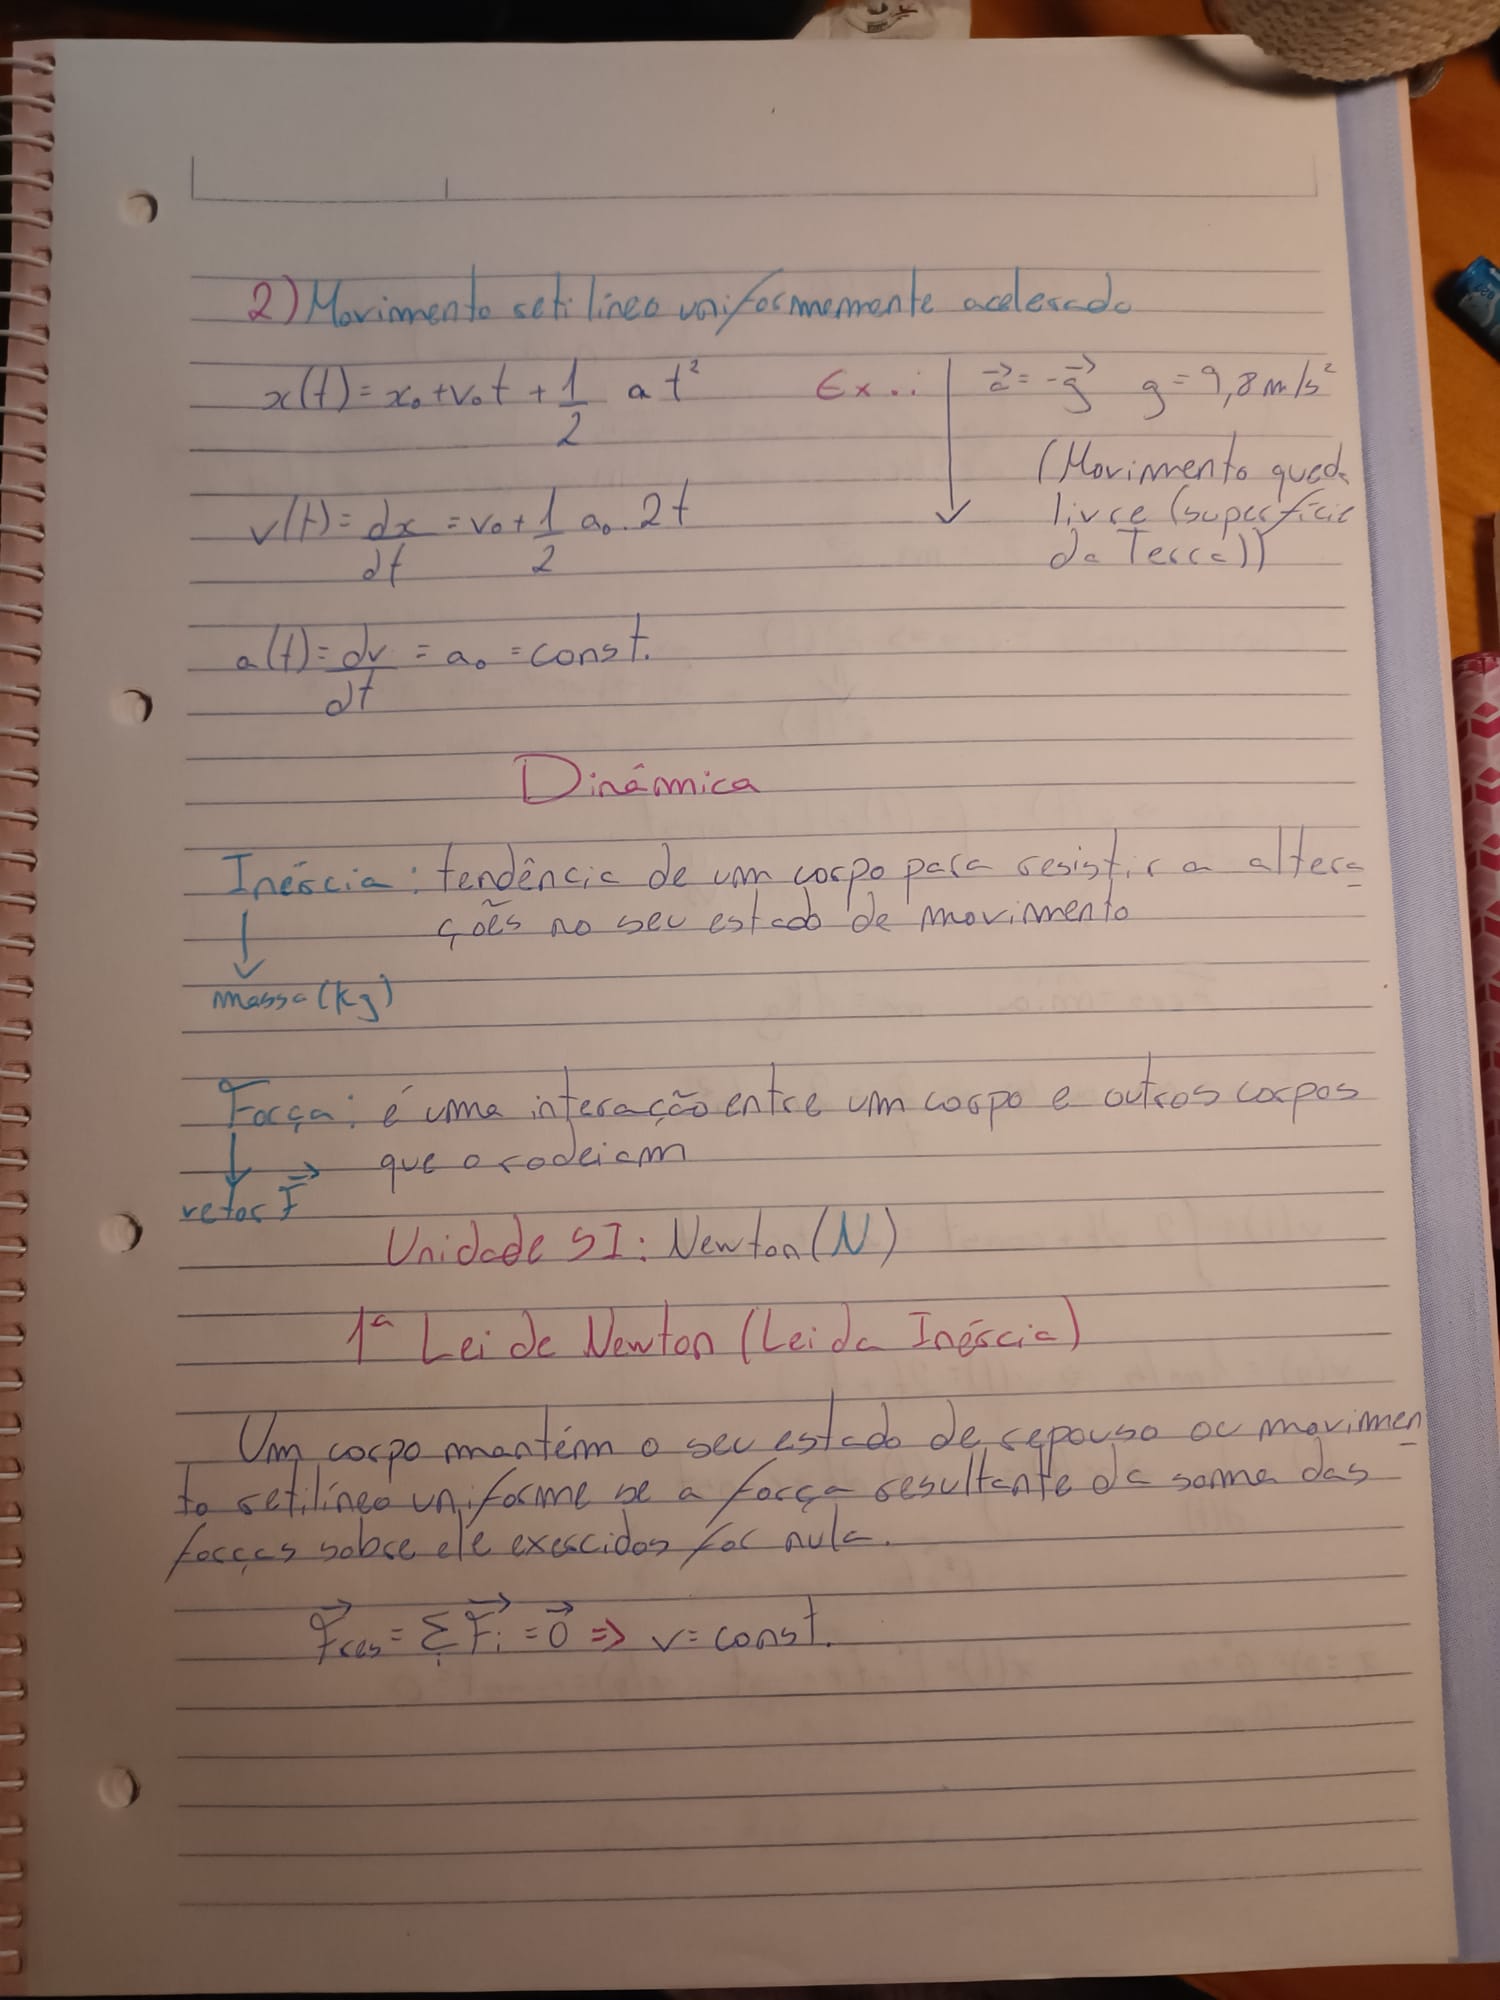 2) Movimento retilíneo uniformemente acelerado
x(t) = x₀ + v₀t + 1/2 a t²
Ex.: a⃗ = -g⃗ g = 9,8 m/s²
(Movimento queda
livre (superfície
da Terra))
v(t) = dx/dt = v₀ + 1/2 a₀ . 2t
a(t) = dv/dt = a₀ = const.
Dinâmica
Inércia: tendência de um corpo para resistir a altera-
ções no seu estado de movimento
massa (kg)
Força: é uma interação entre um corpo e outros corpos
que o rodeiam
vetor F⃗
Unidade SI: Newton (N)
1ª Lei de Newton (Lei da Inércia)
Um corpo mantém o seu estado de repouso ou movimen-
to retilíneo uniforme se a força resultante da soma das
forças sobre ele exercidas for nula.
F⃗res = ΣF⃗i = 0⃗ ⇒ v = const.